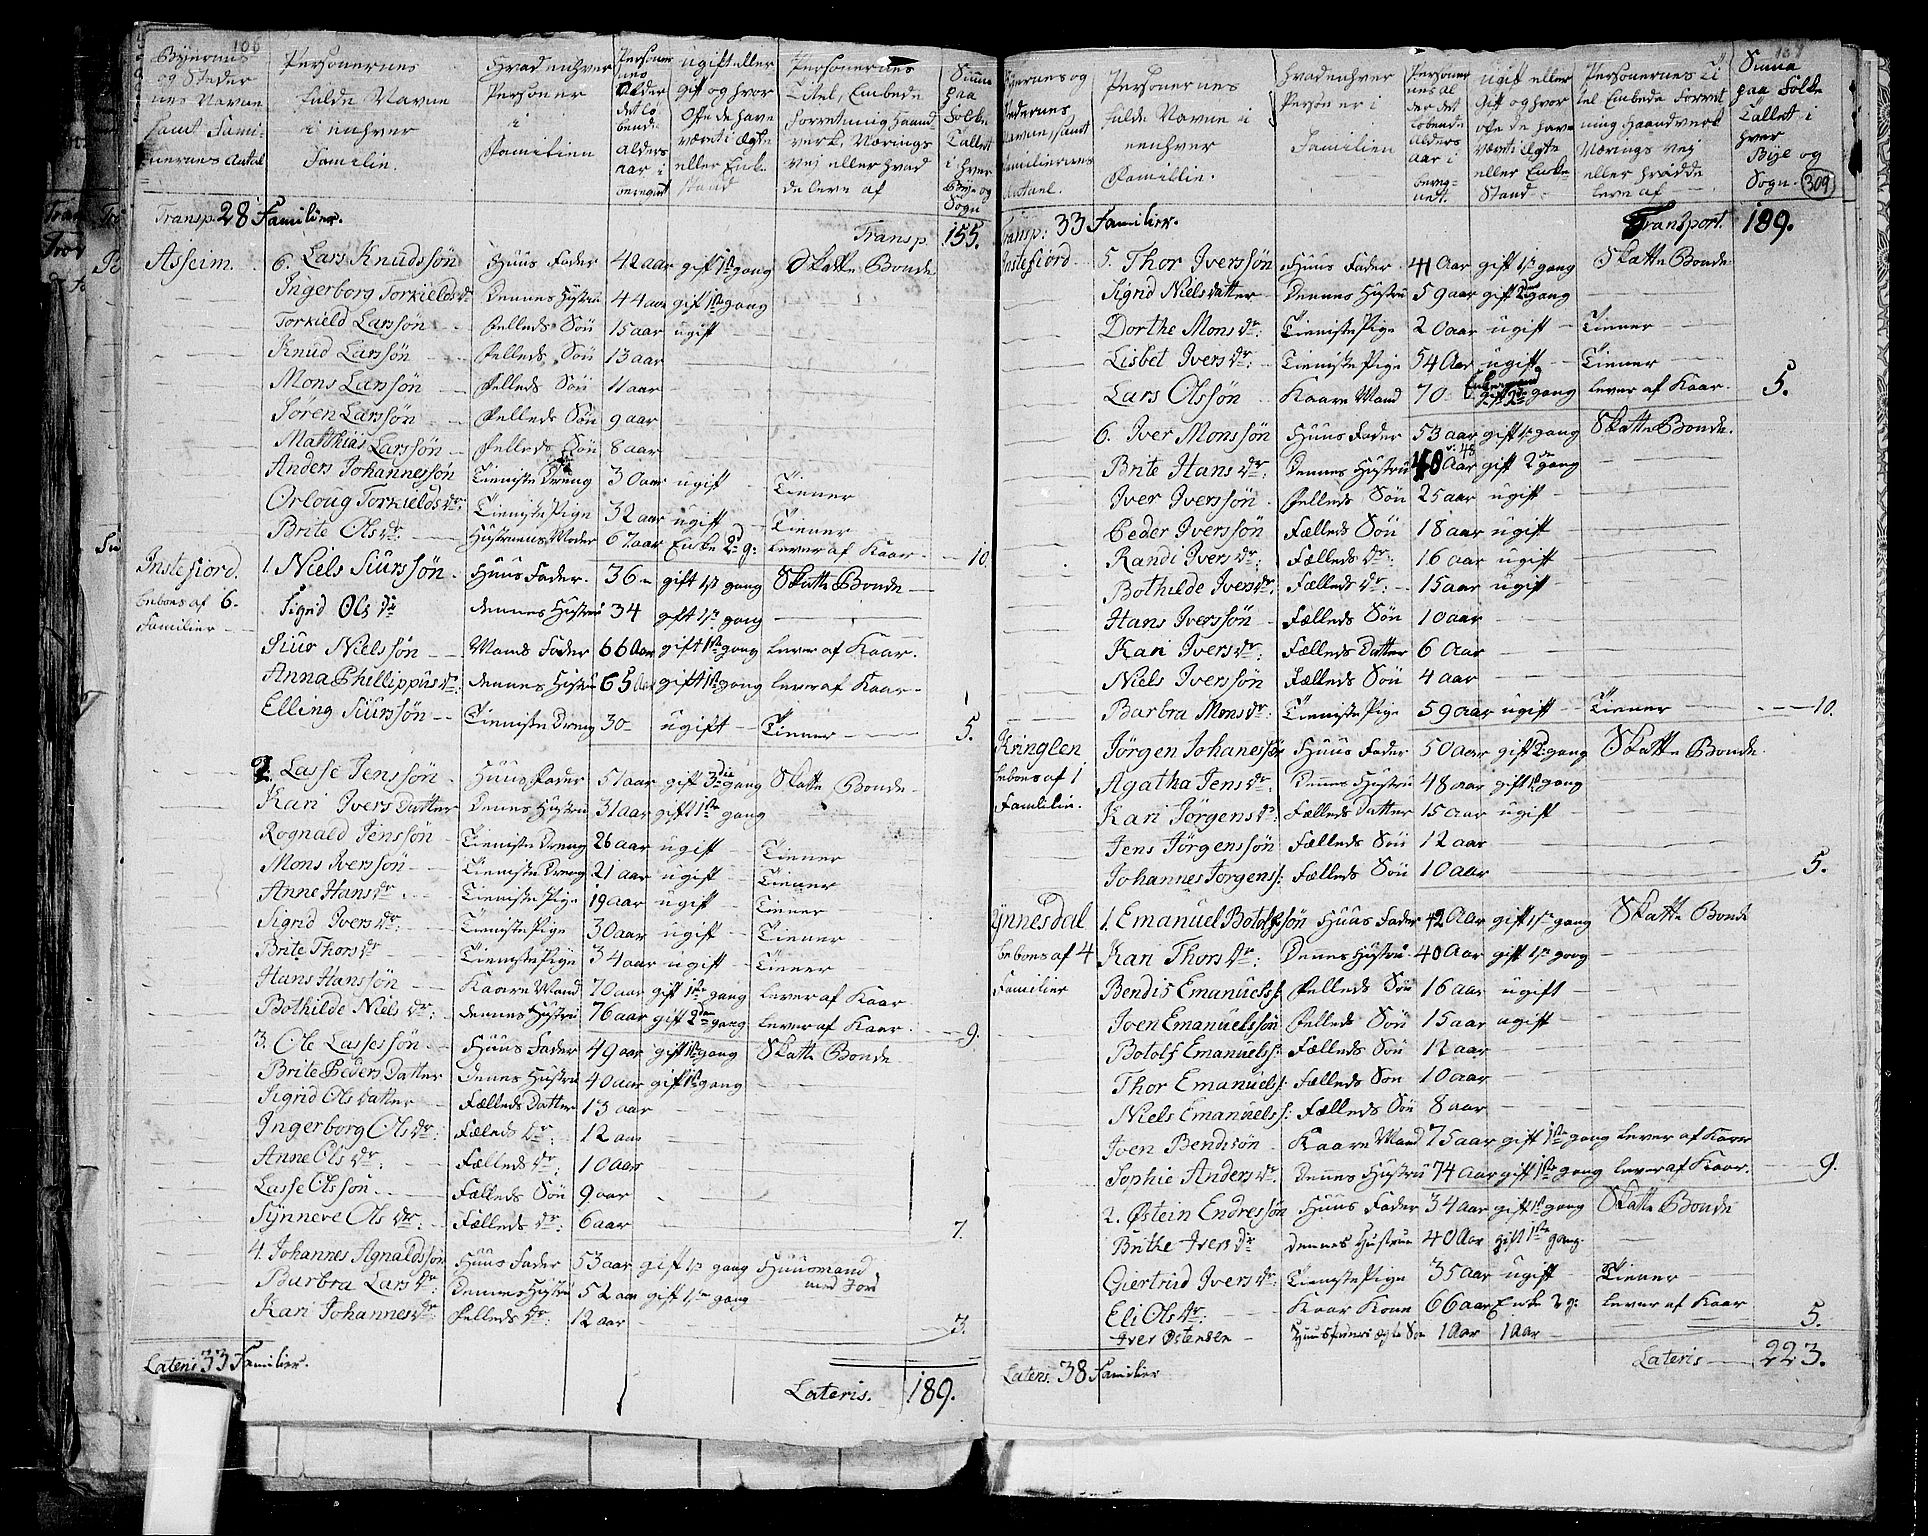 106
Byernes og Stedernes Navne samt Familiernes Antal
Personernes fulde Navne i enhver Familie.
Hvad enhver Person er i Familien
Personernes Alder det løbende Alders aar iberegnet
ugift eller gift og hvor ofte de have været i Ægte eller Enke Stand
Personernes Titel, Embede Forretning Haandverk, Nærings vej eller hvad de leve af
Summa paa Folke Tallet i hver Bye og Sogn
Transp. 28 Familier. Transp. 155.
Asseim. 6. Lars Knudssøn Huus Fader 42 aar gift 1ste gang Skatte Bonde
Ingerborg Torkields Dr Dennes Hustru 44 aar gift 1ste gang
Torkield Larssøn Felleds Søn 15 aar ugift
Knud Larssøn Felleds Søn 13 aar
Mons Larssøn Felleds Søn 11 aar
Søren Larssøn Felleds Søn 9 aar
Matthias Larssøn Felleds Søn 8 aar
Anders Johannessøn Tieniste Dreng 30 aar ugift Tiener
Orloug Torkields dr: Tieniste Pige 32 aar ugift Tiener
Brite Ols dr: Hustruens Moder 67 aar Enke 2d g: lever af Kaar 10
Instefiord. 1. Niels Siurssøn Huus Fader 36 gift 1ste gang Skatte Bonde
beboes af 6 Sigrid Ols dr dennes Hustru 34 gift 1ste gang
Familier
Siur Nielssøn Mands Fader 66 Aar gift 1ste gang lever af Kaar.
Anna Phillippus dr: dennes Hustru 65 Aar gift 1ste gang lever af Kaar
Elling Siurssøn Tieniste Dreng 30 ugift Tiener 5.
2. Lasse Jenssøn Huus Fader 57 aar gift 3die gang Skatte Bonde
Kari Ivers Datter Dennes Hustru 31 aar gift 1ste gang
Rognald Jenssøn Tieniste Dreng 26 aar ugift Tiener
Mons Iverssøn Tieniste Dreng 21 aar ugift Tiener
Anne Hans dr Tieniste Pige 19 aar ugift Tiener
Sigrid Ivers dr: Tieniste Pige 30 aar ugift Tiener
Brite Thors dr Tieniste Pige 34 aar ugift Tiener
Hans Hanssøn Kaare Mand 70 aar gift 1ste gang lever af Kaar
Bothilde Niels dr: dennes Hustru 76 aar gift 2den gang lever af Kaar. 9.
3. Ole Lassessøn Huus Fader 49 aar gift 1ste gang Skatte Bonde
Brite Peders Datter Dennes Hustru 40 aar gift 1ste gang
Sigrid Ols datter Fælleds Datter 13 aar
Ingerborg Ols dr: Fæleds dr: 12 aar
Anne Ols dr: Fælleds dr: 10 aar
Lasse Olssøn Fælleds Søn 9 aar
Synneve Ols dr: Fælleds dr: 6 aar 7.
4. Johannes Agnaldssøn Huus Fader 53 aar gift 1ste gang Huusmand
Barbra Lars dr: Dennes Hustru 52 aar gift 1ste gang med Jord
Kari Johannes dr: Felleds dr: 12 aar 3.
Lateris 33 Familier. Lateris. 189.
Byernes og Stedernes Navne samt Familiernes Antael.
Personernes fulde Navne i eenhver Famillie.
Hvad enhver Person er i Familien
Personernes Alder det løbende Alders aar i beregnet.
ugift eller Gift og hvor ofte de have været i Ægte eller Enke Stand
Personernes Titel Embede Forretning Haandverk Nærings vej eller hvad de leve af
Summa paa Folke Tallet i hver Bye og Sogn. 309
Transp: 33 Familier. Transport. 189.
Instefiord 5. Thor Iverssøn Huus Fader 41 Aar gift 1ste gang Skatte Bonde
Sigrid Niels datter Dennes Hustru 59 aar gift 2den gang
Dorthe Mons dr: Tieniste Pige 20 aar ugift Tiener
Lisbet Ivers dr: Tieniste Pige 54 Aar ugift Tiener
Lars Olssøn Kaare Mand 70 Enkemand gift 2de gang lever af Kaar. 5.
6. Iver Monssøn Huus Fader 53 aar gift 1ste gang Skatte Bonde.
Brite Hans dr: Dennes Hustru 48 Aar gift 2de gang
Iver Iverssøn Felleds Søn 25 aar ugift
Peder Iverssøn Fælleds Søn 18 aar ugift
Randi Ivers dr: Fælleds dr: 16 aar ugift
Bothilde Ivers dr: Fælleds dr: 15 aar ugift
Hans Iverssøn Fælleds Søn 10 aar
Kari Ivers dr: Fælleds Datter 6 Aar
Niels Iverssøn Fælleds Søn 4 aar
Barbra Mons dr: Tieniste Pige 59 Aar ugift Tiener 10.
Kringlen Jörgen Johanessøn Huus Fader 50 aar gift 2: gang Skatte Bonde
beboes af 1 Agatha Jens dr: Dennes Hustru 48 aar gift 1ste gang
Familie. Kari Jörgens dr: Fælleds Datter 15 aar ugift
Jens Jörgenssøn Fælleds Søn 12 aar
Johannes Jörgens s: Fælleds Søn 10 aar 5.
Ynnesdal 1. Emanuel Botolfssøn Huus Fader 42 Aar gift 1ste gang Skatte Bonde
beboes af 4 Kari Thors dr: Dennes Hustru 40 Aar gift 1ste gang
Familier Bendis Emanuels s: Felleds Søn 16 aar ugift
Iven Emanuelssøn Felleds Søn 15 aar ugift
Botolf Emanuels s: Fælleds Søn 12 aar
Thor Emanuels s: Fælleds Søn 10 aar
Niels Emanuels s: Fælleds Søn 8 aar
Iven Bendisøn Kaare Mand 75 aar gift 1ste gang lever af Kaar
Sophie Anders dr. Dennes Hustru 74 Aar gift 1ste gang lever af Kaar. 9.
2. Østein Endressøn Huus Fader 34 aar gift 1ste gang Skatte Bonde
Brithe Ivers dr dennes Hustrue 40 Aar gift 1ste gang.
Giertrud Ivers dr: Tieniste Pige 35 aar ugift Tiener
Eli Ols dr: Kaar Kone 66 aar Enke 2 g: lever af Kaar 5.
Iver Østensen Huusfaders ægte Søn 1 Aar 1 Aar
Lateris. 38 Familier Lateris 223.